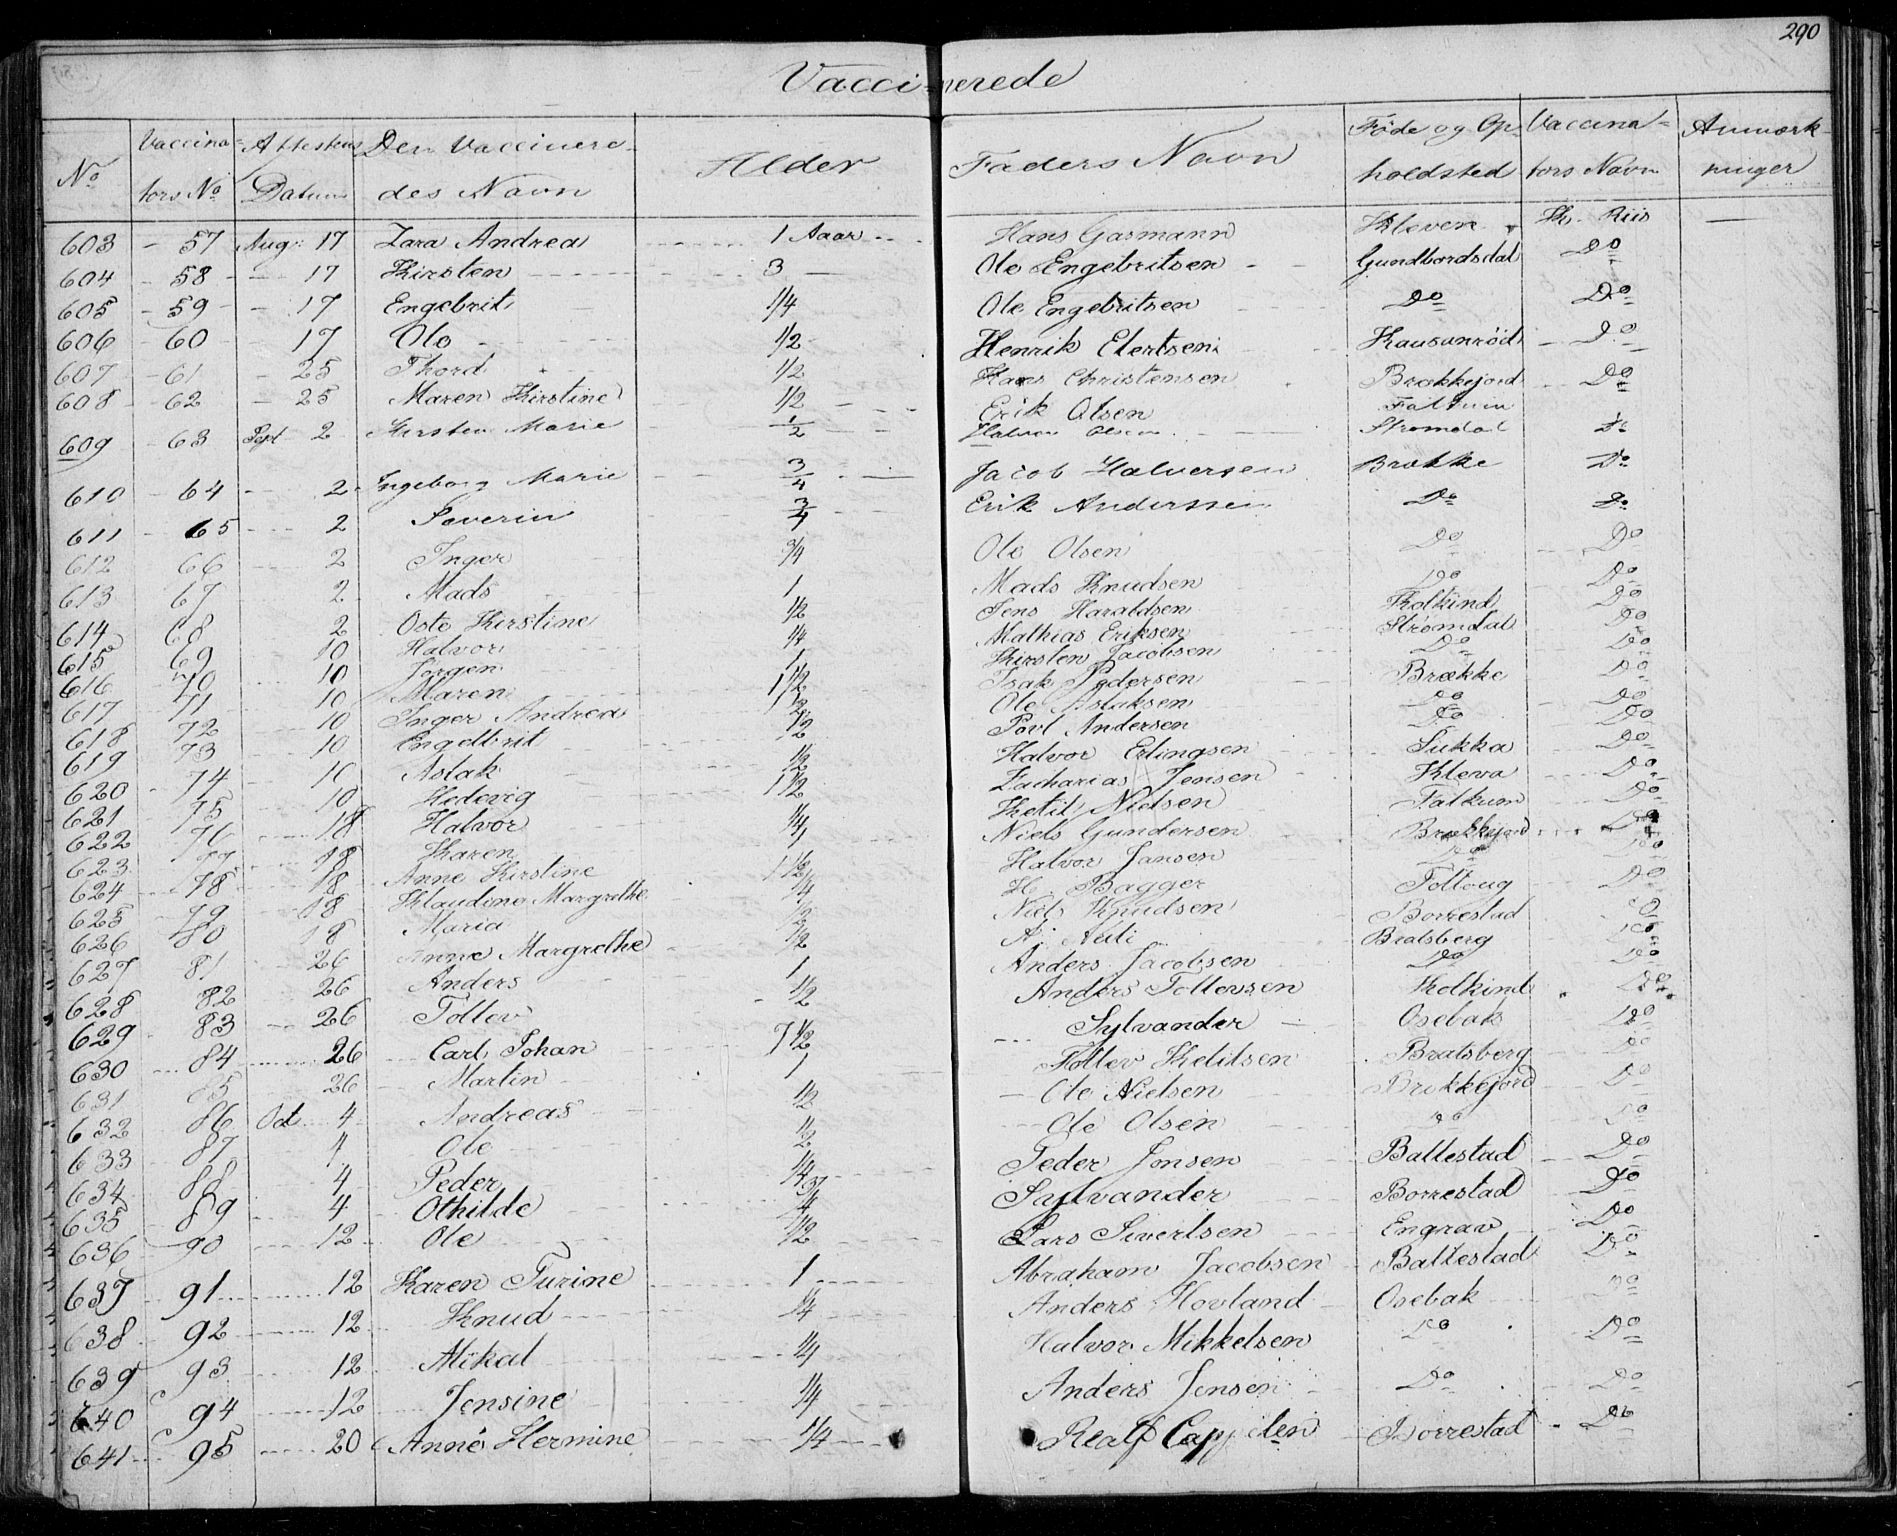 290
Vaccinerede
No Vaccinators No Attestens Datum Den Vaccineredes Navn Alder Faders Navn Føde og Opholdsted Vaccinators Navn Anmærkninger
603 57 Aug: 17 Zara Andrea 1 Aaar Hans Gasmann Kleven Th. Riis
604 58 17 Kirsten 3 Ole Engebritsen Gundbordsdal Do
605 59 17 Engebrit 1/4 Ole Engebritsen Do Do
606 60 17 Ole 1/2 Henrik Elertsen Do
607 61 25 Thord 1/2 Hans Christensen Brækkejord Do
608 62 25 Maren Kirstine 1/2 Erik Olsen Falkum
609 63 Sept 2 Kirsten Marie 1/2 Halvor Olsen Strømdal Do
610 64 2 Ingeborg Marie 3/4 Jacob Halversen Brække Do
611 65 2 Severin 3/4 Erik Anderssen Do Do
612 66 2 Inger 3/4 Ole Olsen Do Do
613 67 2 Mads 1 Mads Knudsen Do Do
614 68 2 Oste Kirstine 1/2 Jens Haraldsen Kolkind Do
615 69 10 Halvor 1/4 Mathias Eriksen Strømdal Do
616 70 10 Jørgen 1 Kirsten Jacobsen Do Do
617 71 10 Maren 1 1/2 Isak Pedersen Brække Do
618 72 10 Inger Andrea 1/2 Ole Aslaksen Do Do
619 73 10 Engelbrit 1/2 Povl Andersen Do Do
620 74 10 Aslak 1/2 Halvor Erlingsen Sukka Do
621 75 10 Hedevig 1 1/2 Zacharias Jensen Kleva Do
622 76 18 Halvor 1/4 Ketil Nielsen Falkum Do
623 77 18 Karen 1 Niels Gundersen Brækkejord Do
624 78 18 Anne Kirstine 1 1/2 Halvor Jansen Do Do
625 79 18 Klaudine Margrethe 1/4 H. Bagger Follaug Do
626 80 18 Maria 1/2 Niels Knudsen Borrestad Do
627 81 26 Anne Margrethe 1/2 A. Bratsberg Do
628 82 26 Anders 1 Anders Jacobsen Do Do
629 83 26 Tollev 1/2 Anders Tollevsen Kolkind Do
630 84 26 Carl Johan 7 1/2 Sylvander Osebak Do
631 85 26 Martin 1 Tollev Ketilsen Bratsberg Do
632 86 Oct 4 Andreas 1/2 Ole Nielsen Brekkejord Do
633 87 4 Ole 1/2 Ole Olsen Do Do
634 88 4 Peder 1/4 Peder Jonsen Ballestad Do
635 89 4 Othilde 3/4 Sylvander Borrestad Do
636 90 12 Ole 1/2 Lars Sivertsen Engrav Do
637 91 12 Karen Turine 1 Abraham Jacobsen Ballestad Do
638 92 12 Knud 1/4 Anders Hovland Osebak Do
639 93 12 Mikal 1/4 Halvor Mikkelsen Do Do
640 94 12 Jensine 1/4 Anders Jensen Do Do
641 95 20 Anne Hermine 1/4 Realf Cappelen Borrestad Do